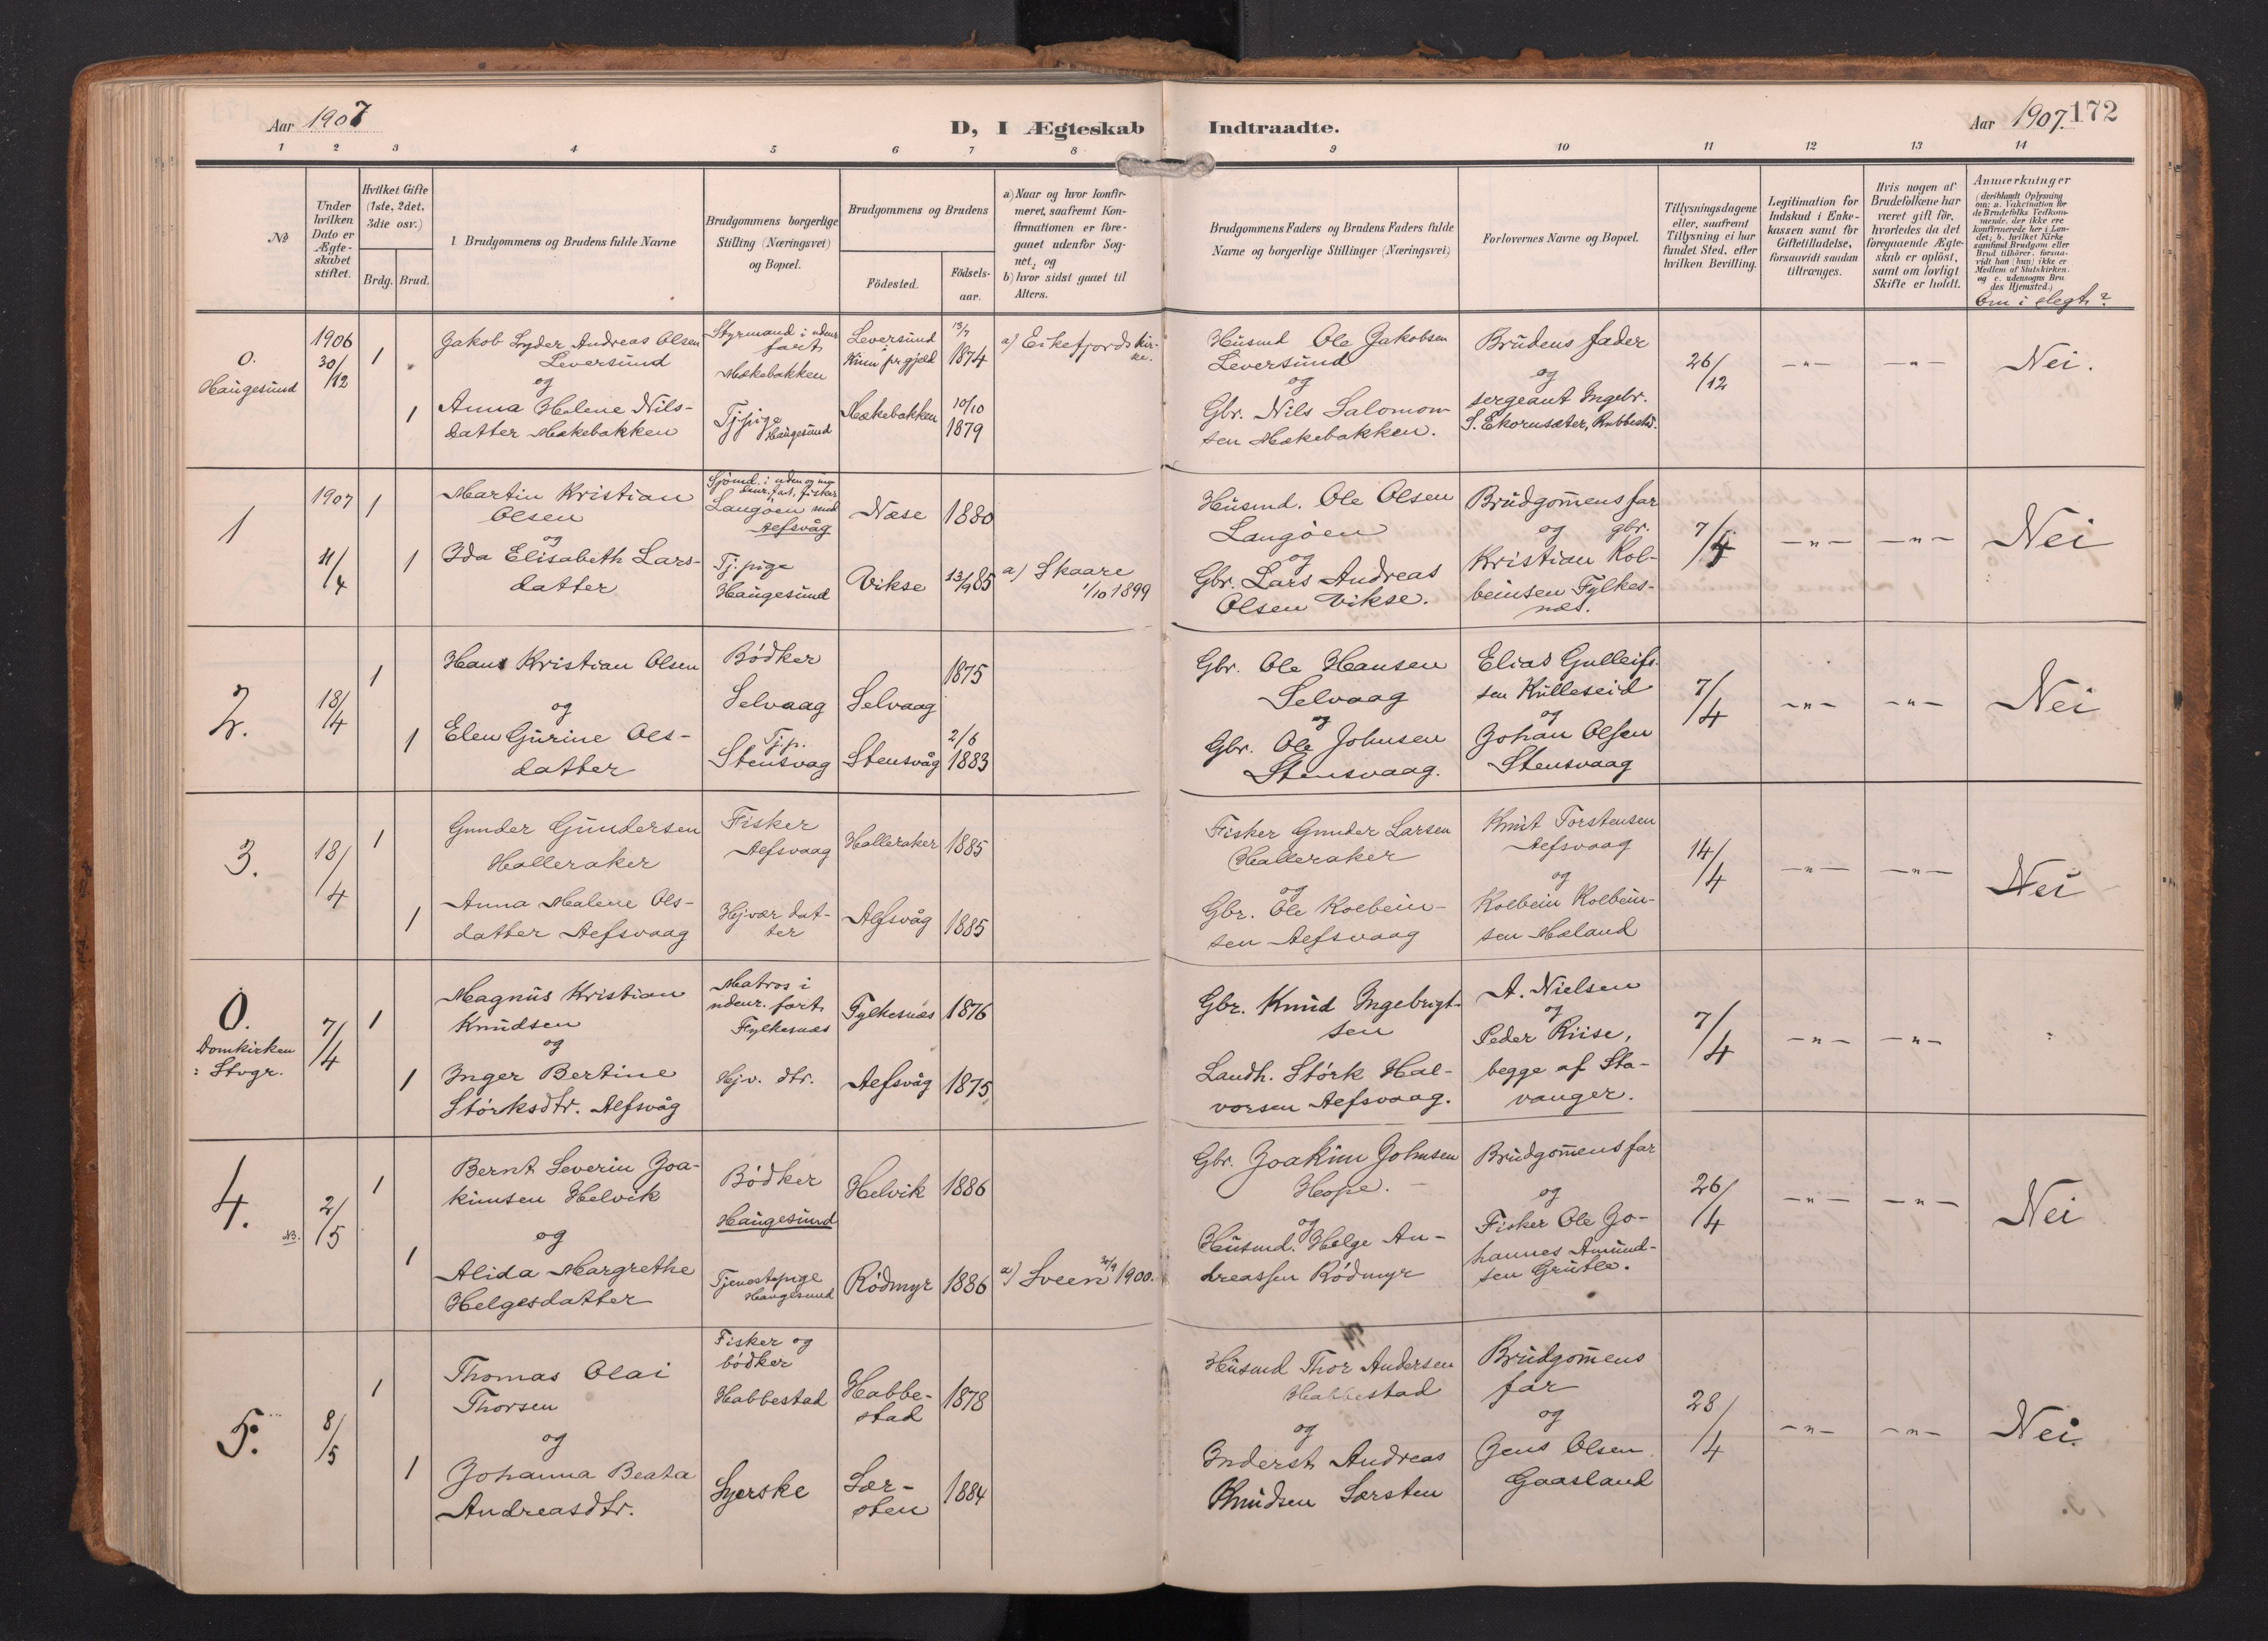 Aar 1907
D, I Ægteskab Indtraadte.
Aar 1907. 172
1 2 3 4 5 6 7 8 9 10 11 12 13 14
No
Under hvilken Dato er Ægteskabet stiftet.
Hvilket Gifte (1ste, 2det, 3die osv.)
Brdg. Brud.
1. Brudgommens og Brudens fulde Navne
Brudgommens borgerlige Stilling (Næringsvei) og Bopæl.
Brudgommens og Brudens
Födested.
Födsels-aar.
a) Naar og hvor konfir-
meret, saafremt Kon-
firmationen er fore-
gaaet udenfor Sog-
net, og
b) hvor sidst gaaet til
Alters.
Brudgommens Faders og Brudens Faders fulde
Navne og borgerlige Stillinger (Næringsvei)
Forlovernes Navne og Bopæl.
Tillysningsdagene
eller, saafremt
Tillysning ei har
fundet Sted, efter
hvilken Bevilling.
Legitimation for
Indskud i Enke-
kassen samt for
Giftetilladelse,
forsaavidt saadan
tiltrænges.
Hvis nogen af
Brudefolkene har
været gift før,
hvorledes da det
foregaaende Ægte-
skab er opløst,
samt om lovligt
Skifte er holdt.
Anmærkninger
(deriblandt Oplysning
om: a. Vakcination for
de Brudefolks Vedkom-
mende, der ikke ere
konfirmerede her i Lan-
det; b. hvilket Kirke
samfund Brudgom eller
Brud tilhører, forsaa-
vidt han (hun) ikke er
Medlem af Statskirken,
og c. udensogns Bru
des Hjemsted.)
Om i slegt?
0.
Haugesund
1906
30/12
1
Jakob Lyder Andreas Olsen
Leversund
og
1
Anna Malene Nils-
datter Mækebakken
Styrmand i udenr
fart
Mækebakken
Tj.pige
Haugesund
Leversund
Kinn pr gjeld
Mækebakken
13/7
1874
10/10
1879
a) Eikefjords kir-
ke.
Husmd Ole Jakobsen
Leversund
og
Gbr. Nils Salomon-
sen Mækebakken.
Brudens fader
og
sergeant Ingebr.
S. Ekornsæter, Rubbestd.
26/12
-"-
-"-
Nei.
1
1907
11/4
1
Martin Kristian
Olsen
og
1
Ida Elisabeth Lars-
datter
Langøen
Alfsvåg
Tj.pige
Haugesund
Næse
Vikse
1880
13/9 85
a) Skaare
1/10 1899
Husmd. Ole Olsen
Langöen
og
Gbr. Lars Andreas
Olsen Vikse.
Brudgom̄ens far
og gbr.
Kristian Kol-
beinsen Fylkes-
nes.
7/4
-"-
-"-
Nei
2.
18/4
1
Hans Kristian Olsen
og
1
Elen Gurine Ols-
datter
Bödker
Selvaag
Tj.p.
Stensvag
Selvaag
Stensvåg
1875
2/6
1883
Gbr. Ole Hansen
Selvaag
og
Gbr. Ole Johnsen
Stensvaag.
Elias Gulleifs-
sen Kulleseid
og
Johan Olsen
Stensvaag
7/4
-"-
-"-
Nei
3.
18/4
1
Gunder Gundersen
Halleraker
1
Anna Malene Ols-
datter Alfsvaag
Fisker
Alfsvaag
Hjvær dat-
ter
Halleraker
Alfsvåg
1885
1885
Fisker Gunder Larsen
Halleraker
og
Gbr. Ole Kolbein-
sen Alfsvaag
Knut Torstensen
Alfsvaag
og
Kolbein Kolbein-
sen Mæland
14/4
-"-
-"-
Nei
0.
Domkirken
: Stvgr.
7/4
1
Magnus Kristian
Knudsen
og
1
Inger Bertine
Störksdtr. Alfsvåg
Matros i
udenr. fart
Fylkesnæs
Hjv. dtr.
Fylkesnæs
Alfsvåg
1876
1875
Gbr. Knud Ingebrigt-
sen
Landh. Störk Hal-
vorsen Alfsvaag.
A. Nielsen
og
Peder Riise,
begge af Sta-
vanger.
7/4
-"-
-"-
4.
NB.
2/5
1
Bernt Severin Joa-
kimsen Helvik
og
1
Alida Margrethe
Helgesdatter
Bödker
Haugesund
Tjenestepige
Haugesund
Helvik
Rödmyr
1886
1886
a) Sveen 30/9 1900.
Gbr. Joakim Johnsen
Hope.
og
Husmd. Helge An-
dreassen Rödmyr
Brudgom̄ens far
og
Fisker Ole Jo-
hannes Amund-
sen Grutle.
26/4
-"-
-"-
Nei
5.
8/5
1
Thomas Olai
Thorsen
og
1
Johanna Beata
Andreasdtr.
Fisker og
bödker
Habbestad
Syerske
Habbe-
stad
Lær-
sten
1878
1884
Husmd Thor Andersen
Habbestad
og
Inderst Andreas
Knudsen Larsten
Brudgom̄ens
far
og
Jens Olsen
Gaasland
28/4
-"-
-"-
Nei.